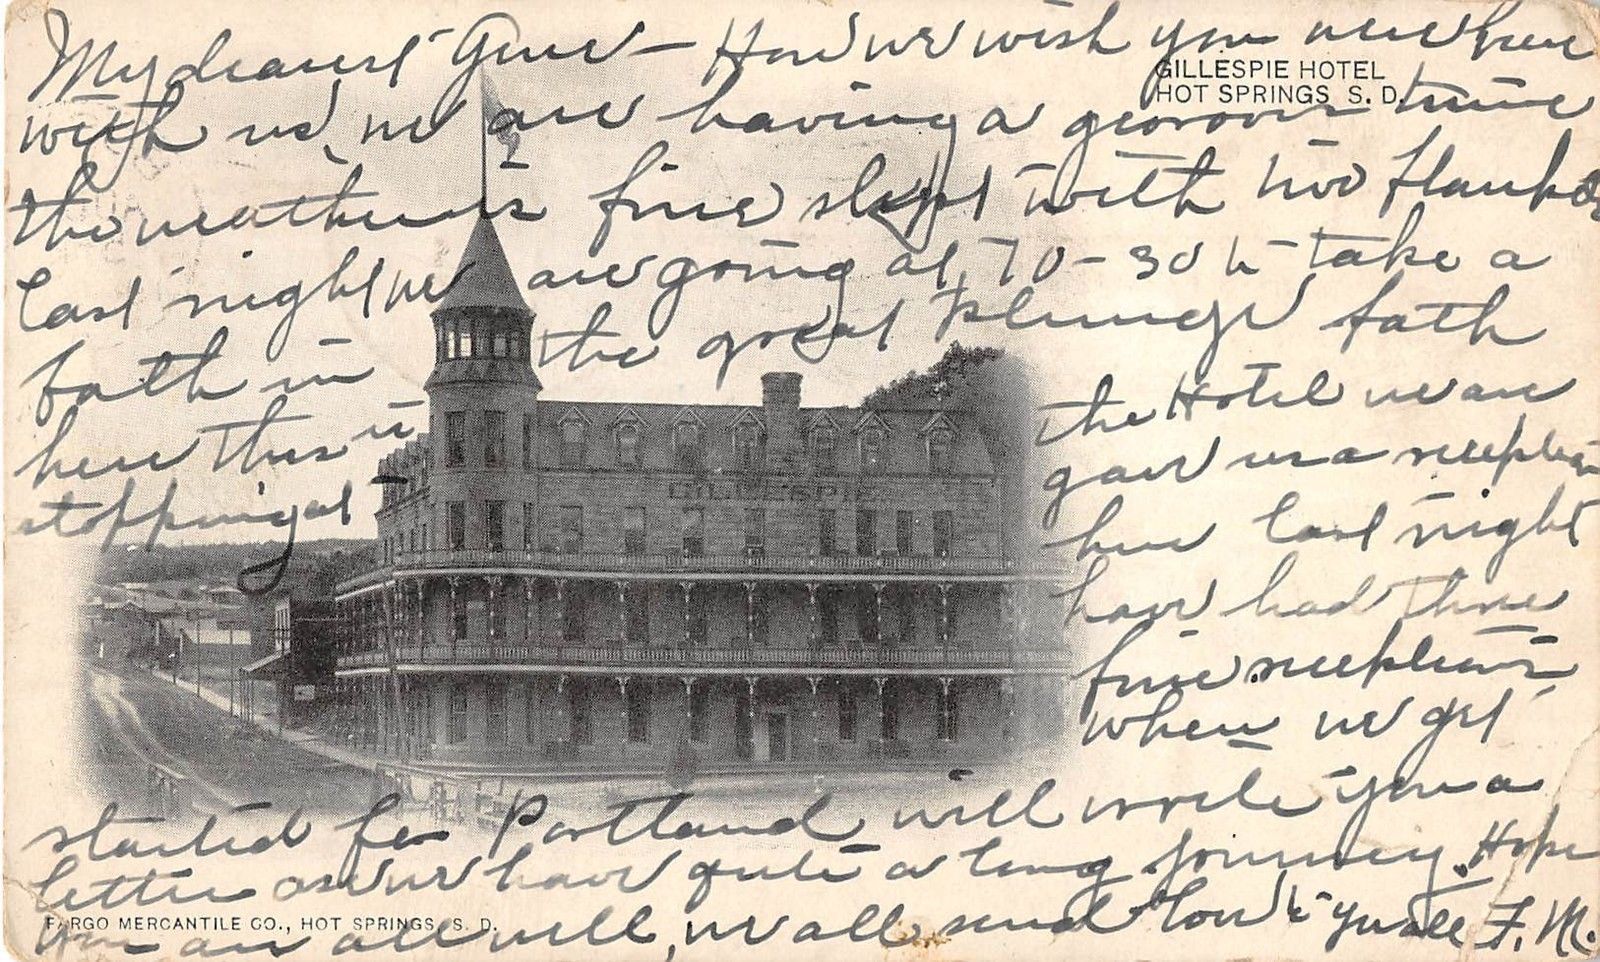 My dearest Gene — How we wish you were here
GILLESPIE HOTEL
HOT SPRINGS S. D.
with us, we are having a time
the weather is fine slept with two
last night we are going at 10-30 to take a
bath in the great Plunge bath
here this is the Hotel we are
stopping at gave us a reception
here last night
have had three
fine receptions
when we get
started for Portland will write you a
letter as we have quite a long journey. Hope
FARGO MERCANTILE CO., HOT SPRINGS, S. D.
you are all well, we all send love to you all F. M.
GILLESPIE